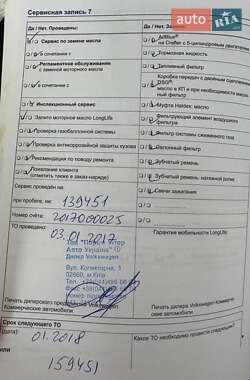 Сервисная запись 7
AUTO.RIA
Да / Нет. Проведены:
Да / Нет.
Сервис по замене масла
в сочетании с
Регламентное обслуживание
с заменой моторного масла
в сочетании с
Инспекционный сервис
Залито моторное масло LongLife
Проверка газобаллонной системы
Проверка антикоррозийной защиты кузова
Рекомендация по поводу ремонта
Пожелание клиента
(отметить также в заказ-наряде)
на Crafter с 5-цилиндровым двигателем
Тормозная жидкость
Топливный фильтр
Коробка передач с двойным сцеплением
DSG®
Масло в КП и при необходимости масляный фильтр
Муфта Haldex: масло
Фильтрующий элемент воздушного
фильтра
Фильтр системы сжиженного газа
Салонный фильтр
Зубчатый ремень
Зубчатый ремень, натяжной ролик
Свечи зажигания
Сервис проведён на
при пробеге, км: 139451
Номер счёта: 2017000025
ТО проведено: 03.01.2017
Гарантия мобильности LongLife
Дилер Volkswagen
02660,
м.Київ
Печать дилерского предприятия Volkswagen
Коммерческие автомобили
Печать дилера Volkswagen Коммерческие автомобили
Срок следующего ТО
(дата) 01.2018
или 159451
Какое ТО необходимо провести следующим?